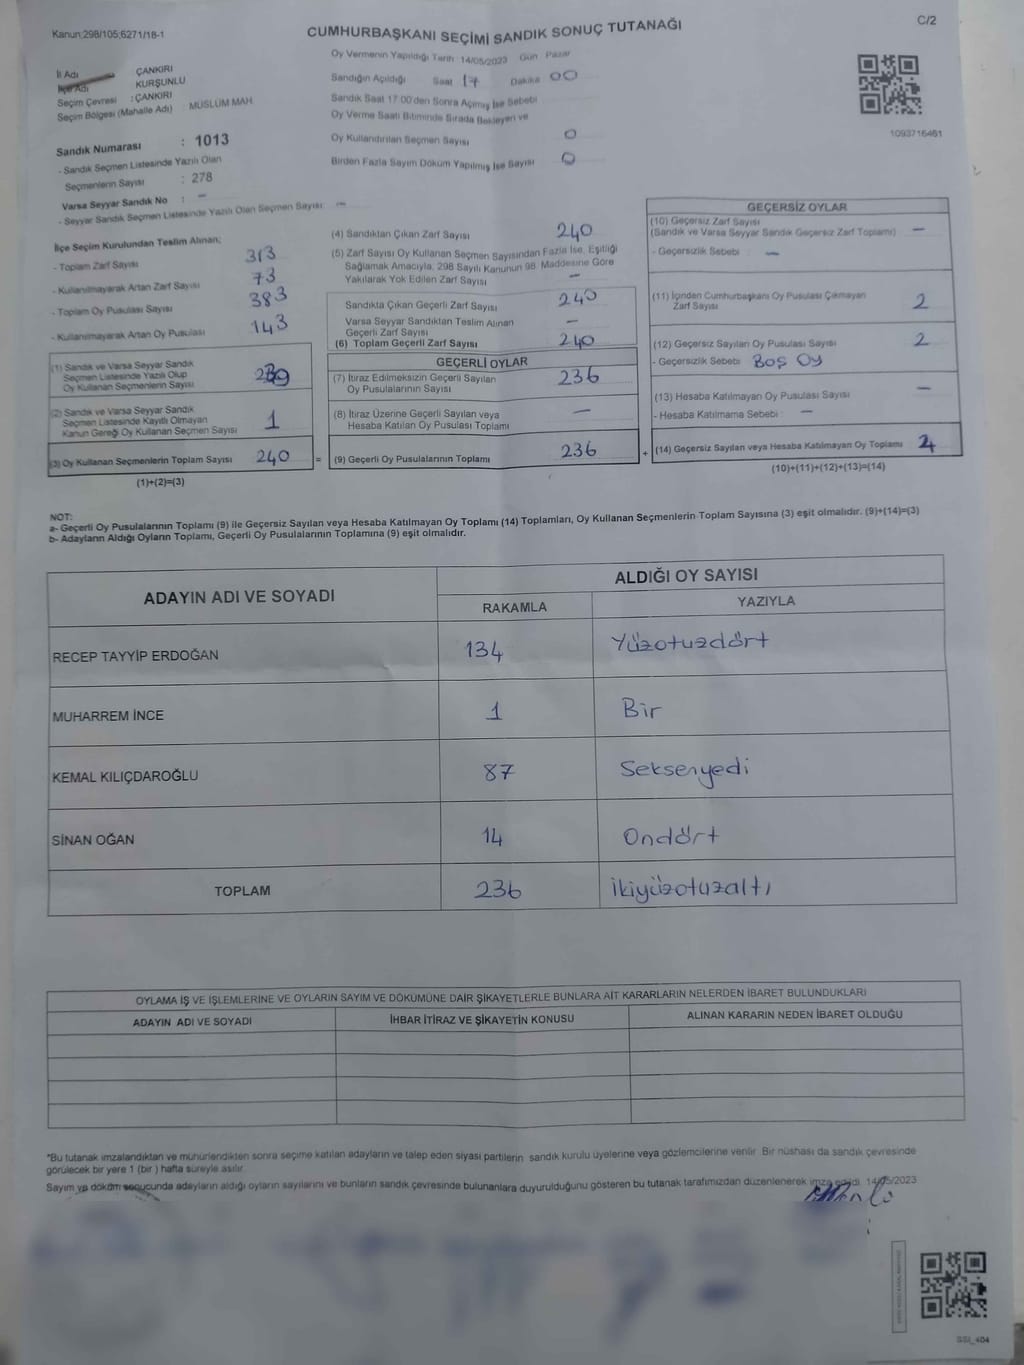 Kanun;298/105;6271/18-1
C/2
CUMHURBAŞKANI SEÇİMİ SANDIK SONUÇ TUTANAĞI
Oy Vermenin Yapıldığı Tarih : 14/05/2023 Gün Pazar
İl Adı ÇANKIRI
İlçe Adı KURŞUNLU
Seçim Çevresi : ÇANKIRI
Seçim Bölgesi (Mahalle Adı) : MÜSLÜM MAH.
Sandığın Açıldığı Saat 17 Dakika 00
Sandık Saat 17.00'den Sonra Açılmış İse Sebebi
Oy Verme Saati Bitiminde Sırada Bekleyen ve
Oy Kullandırılan Seçmen Sayısı 0
Birden Fazla Sayım Döküm Yapılmış İse Sayısı 0
1093716461
Sandık Numarası : 1013
- Sandık Seçmen Listesinde Yazılı Olan
Seçmenlerin Sayısı : 278
Varsa Seyyar Sandık No : -
- Seyyar Sandık Seçmen Listesinde Yazılı Olan Seçmen Sayısı: -
İlçe Seçim Kurulundan Teslim Alınan;
- Toplam Zarf Sayısı 313
- Kullanılmayarak Artan Zarf Sayısı 73
- Toplam Oy Pusulası Sayısı 383
- Kullanılmayarak Artan Oy Pusulası 143
(1) Sandık ve Varsa Seyyar Sandık
Seçmen Listesinde Yazılı Olup
Oy Kullanan Seçmenlerin Sayısı 239
(2) Sandık ve Varsa Seyyar Sandık
Seçmen Listesinde Kayıtlı Olmayan
Kanun Gereği Oy Kullanan Seçmen Sayısı 1
(3) Oy Kullanan Seçmenlerin Toplam Sayısı 240 =
(1)+(2)=(3)
(4) Sandıktan Çıkan Zarf Sayısı 240
(5) Zarf Sayısı Oy Kullanan Seçmen Sayısından Fazla İse, Eşitliği
Sağlamak Amacıyla, 298 Sayılı Kanunun 98. Maddesine Göre
Yakılarak Yok Edilen Zarf Sayısı -
Sandıkta Çıkan Geçerli Zarf Sayısı 240
Varsa Seyyar Sandıktan Teslim Alınan
Geçerli Zarf Sayısı -
(6) Toplam Geçerli Zarf Sayısı 240
GEÇERLİ OYLAR
(7) İtiraz Edilmeksizin Geçerli Sayılan
Oy Pusulalarının Sayısı 236
(8) İtiraz Üzerine Geçerli Sayılan veya
Hesaba Katılan Oy Pusulası Toplamı -
(9) Geçerli Oy Pusulalarının Toplamı 236 +
GEÇERSİZ OYLAR
(10) Geçersiz Zarf Sayısı
(Sandık ve Varsa Seyyar Sandık Geçersiz Zarf Toplamı) -
- Geçersizlik Sebebi : -
(11) İçinden Cumhurbaşkanı Oy Pusulası Çıkmayan
Zarf Sayısı 2
(12) Geçersiz Sayılan Oy Pusulası Sayısı 2
- Geçersizlik Sebebi Boş Oy
(13) Hesaba Katılmayan Oy Pusulası Sayısı -
- Hesaba Katılmama Sebebi : -
(14) Geçersiz Sayılan veya Hesaba Katılmayan Oy Toplamı 4
(10)+(11)+(12)+(13)=(14)
NOT:
a- Geçerli Oy Pusulalarının Toplamı (9) ile Geçersiz Sayılan veya Hesaba Katılmayan Oy Toplamı (14) Toplamları, Oy Kullanan Seçmenlerin Toplam Sayısına (3) eşit olmalıdır. (9)+(14)=(3)
b- Adayların Aldığı Oyların Toplamı, Geçerli Oy Pusulalarının Toplamına (9) eşit olmalıdır.
ADAYIN ADI VE SOYADI
ALDIĞI OY SAYISI
RAKAMLA YAZIYLA
RECEP TAYYİP ERDOĞAN 134 Yüzotuzdört
MUHARREM İNCE 1 Bir
KEMAL KILIÇDAROĞLU 87 Seksenyedi
SİNAN OĞAN 14 Ondört
TOPLAM 236 İkiyüzotuzaltı
OYLAMA İŞ VE İŞLEMLERİNE VE OYLARIN SAYIM VE DÖKÜMÜNE DAİR ŞİKAYETLERLE BUNLARA AİT KARARLARIN NELERDEN İBARET BULUNDUKLARI
ADAYIN ADI VE SOYADI İHBAR İTİRAZ VE ŞİKAYETİN KONUSU ALINAN KARARIN NEDEN İBARET OLDUĞU
*Bu tutanak imzalandıktan ve mühürlendikten sonra seçime katılan adayların ve talep eden siyasi partilerin sandık kurulu üyelerine veya gözlemcilerine verilir. Bir nüshası da sandık çevresinde
görülecek bir yere 1 (bir ) hafta süreyle asılır.
Sayım ve döküm sonucunda adayların aldığı oyların sayılarını ve bunların sandık çevresinde bulunanlara duyurulduğunu gösteren bu tutanak tarafımızdan düzenlenerek imza edildi. 14/05/2023
SSI_404